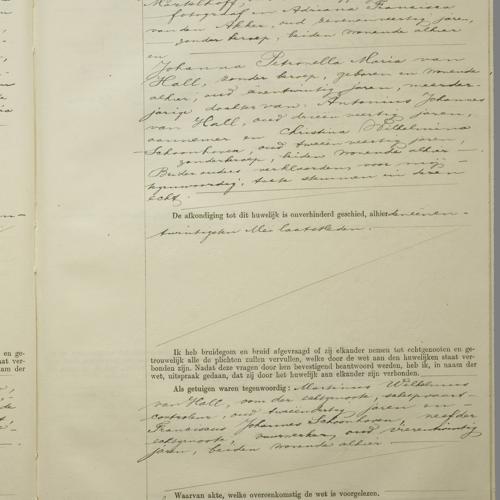 fotograaf en Adriana Francisca
van den Akker, oud zevenenveertig jaren,
zonder beroep, beiden wonende alhier
en
Johanna Petronella Maria van
Hall, zonder beroep, geboren en wonende
alhier, oud eenentwintig jaren, meerder-
jarige dochter van Antonius Johannes
van Hall, oud drieenveertig jaren,
aannemer en Christina Wilhelmina
Schoonhoven, oud tweeenveertig jaren,
zonder beroep, beiden wonende alhier
Beide ouders verklaarden, voor mij
tegenwoordig, toe te stemmen in dezen
echt.
De afkondiging tot dit huwelijk is onverhinderd geschied, alhier den eenen-
twintigsten Mei laatstleden.
Ik heb bruidegom en bruid afgevraagd of zij elkander nemen tot echtgenooten en ge-
trouwelijk alle de plichten zullen vervullen, welke door de wet aan den huwelijken staat ver-
bonden zijn. Nadat deze vragen door hen bevestigend beantwoord werden, heb ik, in naam der
wet, uitspraak gedaan, dat zij door het huwelijk aan elkander zijn verbonden.
Als getuigen waren tegenwoordig: Martinus Wilhelmus
van Hall, oom der echtgenoote,
controleur, oud jaren en
Franciscus Johannes Schoonhoven, neef der
echtgenoote, oud vierentwintig
jaren, beiden wonende alhier
Waarvan akte, welke overeenkomstig de wet is voorgelezen.
en ge-
aat ver-
am der